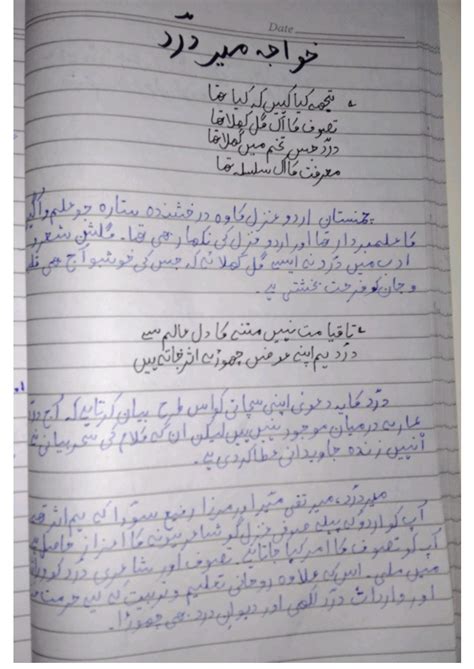 Date
خواجہ میر درد
تجھے کیا کہیں کہ کیا تھا
تصوف کا اک گل کھلا تھا
درد جس تخم میں گھلا تھا
معرفت کا اک سلسلہ تھا
چمنستان اردو غزل کا وہ درخشندہ ستارہ جو علم و
کا علمبردار تھا اور اردو غزل کی نکھار بھی تھا۔ گلشن شعر و
ادب میں درد نے ایسے گل کھلائے کہ جس کی خوشبو آج بھی
و جان کو فرحت بخشتی ہے۔
تا قیامت نہیں مٹنے کا دل عالم سے
درد ہم اپنے عوض چھوڑے اثر جاتے ہیں
درد کا یہ دعویٰ اپنی سچائی کو اس طرح بیان کرتا ہے کہ آج درد
ہمارے درمیان موجود نہیں ہیں لیکن ان کے کلام کی سحر بیانی نے
انہیں زندہ جاویدانی عطا کر دی ہے۔
میر درد، میر تقی میر اور مرزا رفیع سودا کے ہم اثر تھے
آپ کو اردو کے پہلے صوفی غزل گو شاعر ہونے کا اعزاز حاصل ہے
آپ کو تصوف کا امر کہا جاتا ہے۔ تصوف اور شاعری درد کو
میں ملی۔ اس کے علاوہ روحانی تعلیم و تربیت کے لیے حرمت
اور واردات درد الٰہی اور دیوان درد بھی چھوڑا۔